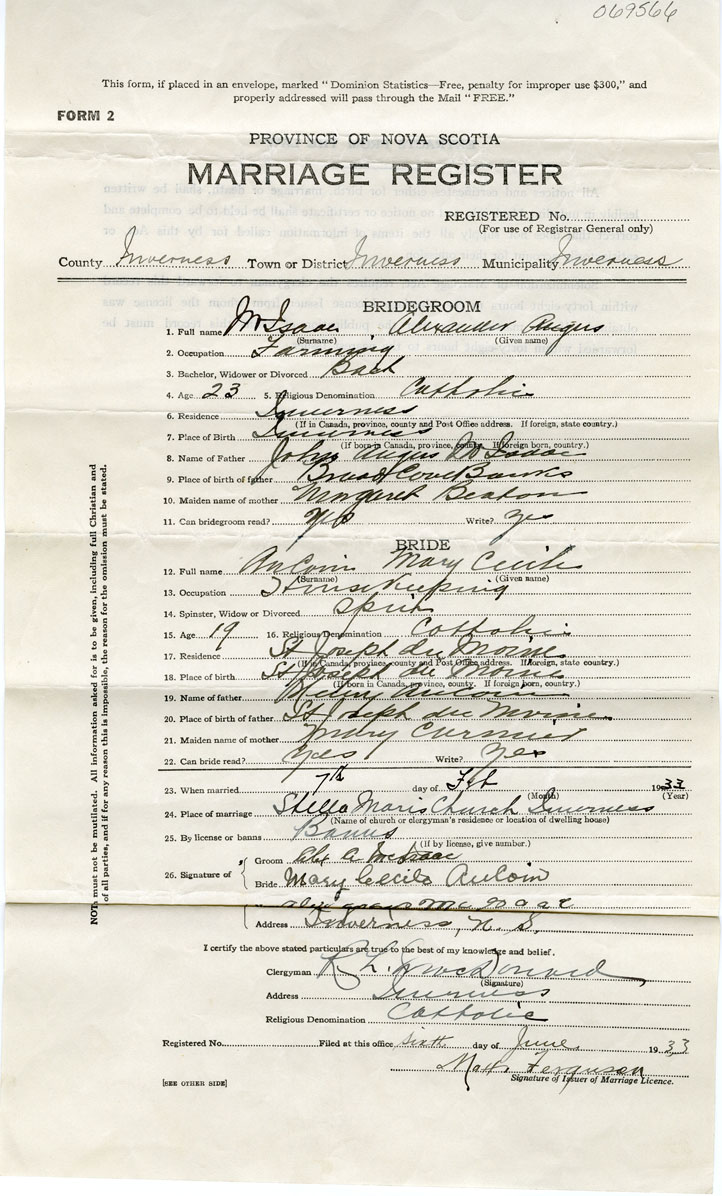 069566
This form, if placed in an envelope, marked "Dominion Statistics—Free, penalty for improper use $300," and
properly addressed will pass through the Mail "FREE."
FORM 2
PROVINCE OF NOVA SCOTIA
MARRIAGE REGISTER
REGISTERED No.
(For use of Registrar General only)
County Inverness Town or District Inverness Municipality Inverness
BRIDEGROOM
1. Full name McIsaac Alexander Angus
(Surname) (Given name)
2. Occupation Farming
3. Bachelor, Widower or Divorced Bach
4. Age 23 5. Religious Denomination Catholic
6. Residence Inverness
(If in Canada, province, county and Post Office address. If foreign, state country.)
7. Place of Birth Inverness
(If born in Canada, province, county. If foreign born, country.)
8. Name of Father John Angus McIsaac
9. Place of birth of father Broad Cove Banks
10. Maiden name of mother Margaret Beaton
11. Can bridegroom read? Yes Write? Yes
BRIDE
12. Full name AuCoin Mary Cecile
(Surname) (Given name)
13. Occupation Housekeeping
14. Spinster, Widow or Divorced Spins
15. Age 19 16. Religious Denomination Catholic
17. Residence St Joseph du Moine
(If in Canada, province, county and Post Office address. If foreign, state country.)
18. Place of birth St Joseph du Moine
(If born in Canada, province, county. If foreign born, country.)
19. Name of father AuCoin
20. Place of birth of father St Joseph du Moine
21. Maiden name of mother Mary Cormier
22. Can bride read? Yes Write? Yes
23. When married 7th day of Feb 1933
(Month) (Year)
24. Place of marriage Stella Maris Church Inverness
(Name of church or clergyman's residence or location of dwelling house)
25. By license or banns Banns
(If by license, give number.)
26. Signature of
Groom Alex A McIsaac
Bride Mary Cecile AuCoin
Address Inverness, N. S.
I certify the above stated particulars are true to the best of my knowledge and belief.
Clergyman R. L. MacDonald
(Signature)
Address Inverness
Religious Denomination Catholic
Registered No. Filed at this office sixth day of June 1933
Ferguson
Signature of Issuer of Marriage Licence.
[SEE OTHER SIDE]
NOTE must not be mutilated. All information asked for is to be given, including full Christian and
of all parties, and if for any reason this is impossible, the reason for the omission must be stated.